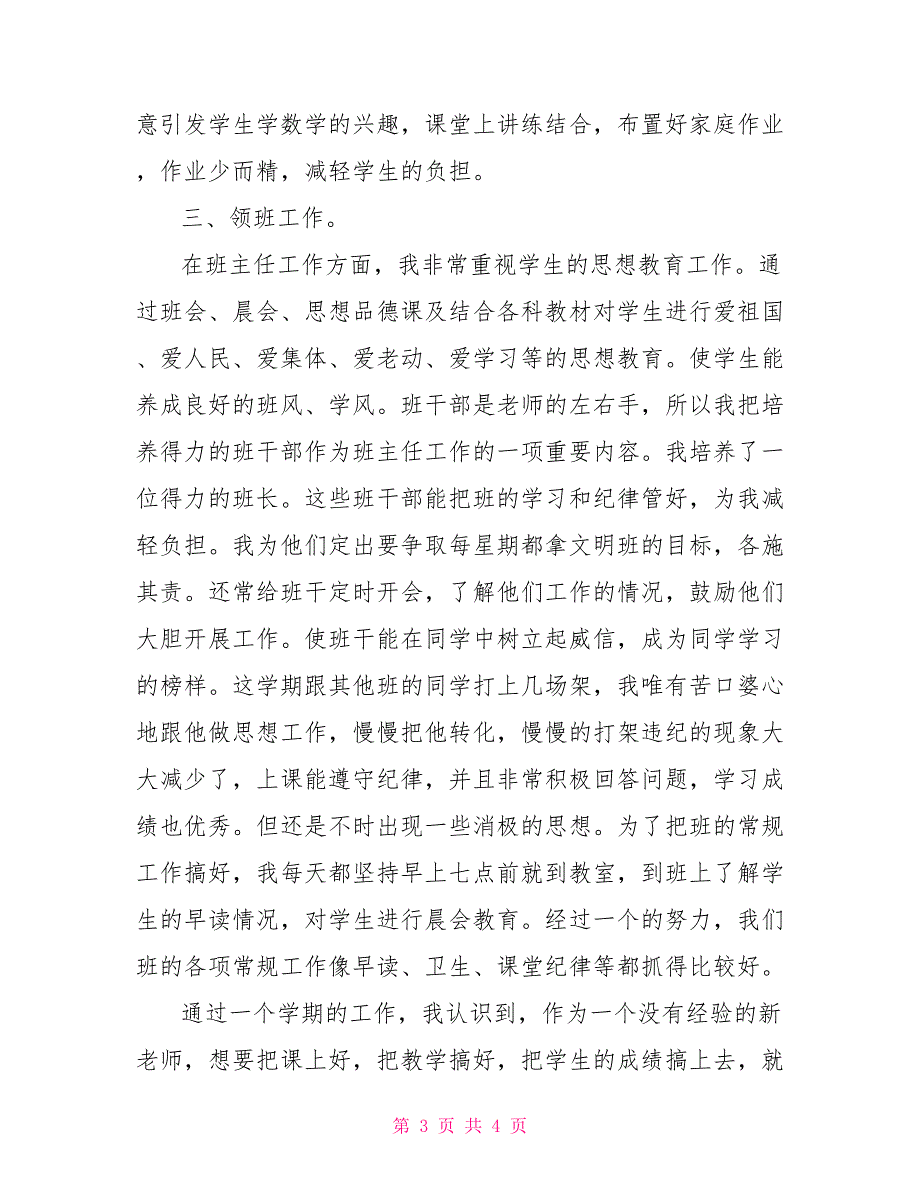 意引发学生学数学的兴趣，课堂上讲练结合，布置好家庭作业
，作业少而精，减轻学生的负担。
三、领班工作。
在班主任工作方面，我非常重视学生的思想教育工作。通
过班会、晨会、思想品德课及结合各科教材对学生进行爱祖国
、爱人民、爱集体、爱老动、爱学习等的思想教育。使学生能
养成良好的班风、学风。班干部是老师的左右手，所以我把培
养得力的班干部作为班主任工作的一项重要内容。我培养了一
位得力的班长。这些班干部能把班的学习和纪律管好，为我减
轻负担。我为他们定出要争取每星期都拿文明班的目标，各施
其责。还常给班干定时开会，了解他们工作的情况，鼓励他们
大胆开展工作。使班干能在同学中树立起威信，成为同学学习
的榜样。这学期跟其他班的同学打上几场架，我唯有苦口婆心
地跟他做思想工作，慢慢把他转化，慢慢的打架违纪的现象大
大减少了，上课能遵守纪律，并且非常积极回答问题，学习成
绩也优秀。但还是不时出现一些消极的思想。为了把班的常规
工作搞好，我每天都坚持早上七点前就到教室，到班上了解学
生的早读情况，对学生进行晨会教育。经过一个的努力，我们
班的各项常规工作像早读、卫生、课堂纪律等都抓得比较好。
通过一个学期的工作，我认识到，作为一个没有经验的新
老师，想要把课上好，把教学搞好，把学生的成绩搞上去，就
第 3 页 共 4 页